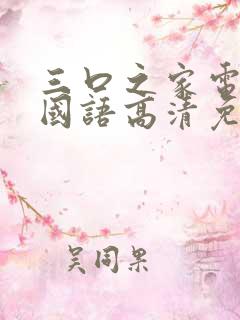 三口之家電
國語高清免
吴同果